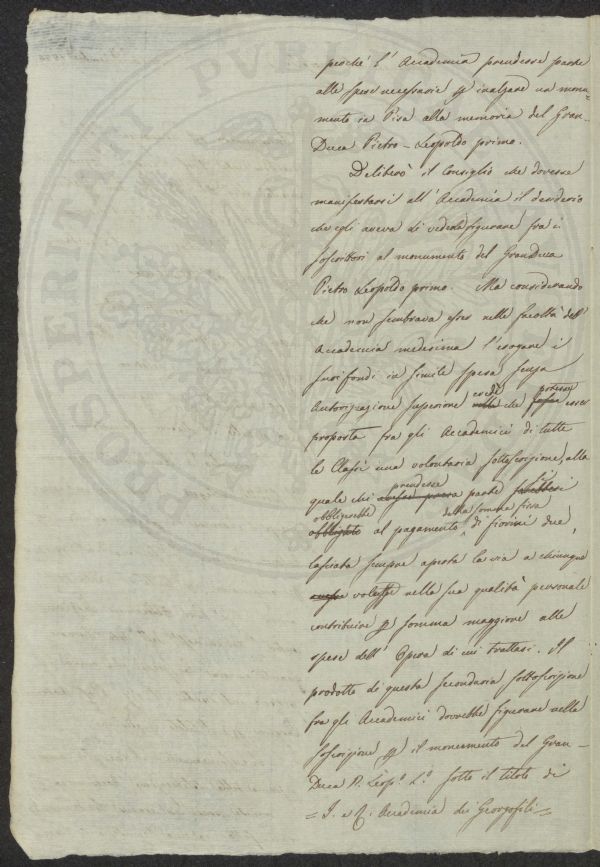 perché l'Accademia prendesse parte
alle spese necessarie p inalzare un monu=
mento in Pisa alla memoria del Gran-
Duca Pietro-Leopoldo primo.
Deliberò il Consiglio che dovesse
manifestarsi all'Accademia il desiderio
che egli aveva di vederla figurare fra i
soscrittori al monumento del GranDuca
Pietro Leopoldo primo. Ma considerando
che non sembrava esser nelle facoltà dell'
Accademia medesima l'erogare i
suoi fondi in simile spesa senza
Autorizzazione superiore crede che potesse esser
proposta fra gli Accademici di tutte
le Classi una volontaria sottoscrizione, alla
quale chi prendesse parte si
obbligherebbe al pagamento della somma fissa di fiorini due,
lasciata sempre aperta la via a chiunque
volesse nella sua qualità personale
contribuire p somma maggiore alle
spese dell'Opera di cui trattasi. Il
prodotto di questa secondaria sottoscrizione
fra gli Accademici dovrebbe figurare nella
soscrizione p il monumento del Gran-
Duca P. Leop.º I.º sotto il titolo di
= I. e R. Accademia dei Georgofili =
PUBLICAE
PROSPERITATI